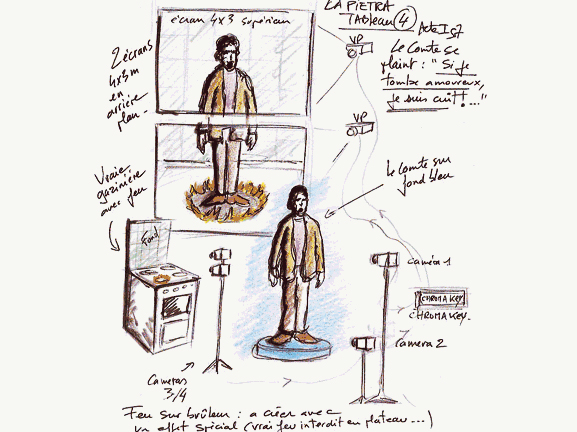 LA PIETRA
TABLEAU 4
Acte I s7
écran 4x3 supérieur
VP
Le Comte se
plaint : "Si je
tombe amoureux,
je suis cuit!..."
2 écrans
4x3m
en
arrière
plan.
VP
Le Comte sur
fond bleu
Vraie
gazinière
avec feu
Fond
caméra 1
CHROMAKEY
CHROMAKEY.
Camera 2
Cameras
3/4
Feu sur brûleur : a créer avec
un effet spécial (vrai feu interdit en plateau...)